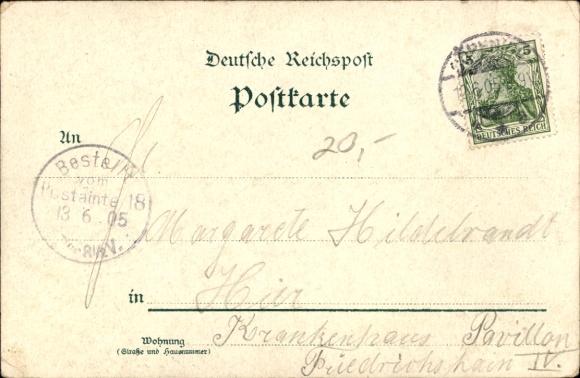 Deutsche Reichspost
Postkarte
5 5
DEUTSCHES REICH
An
20,-
Bestellt
vom
Postamte 18
13 6 05
Margarete Hildebrandt
in Hier
Wohnung
(Straße und Hausnummer)
Krankenhaus Pavillon
Friedrichshain IV.